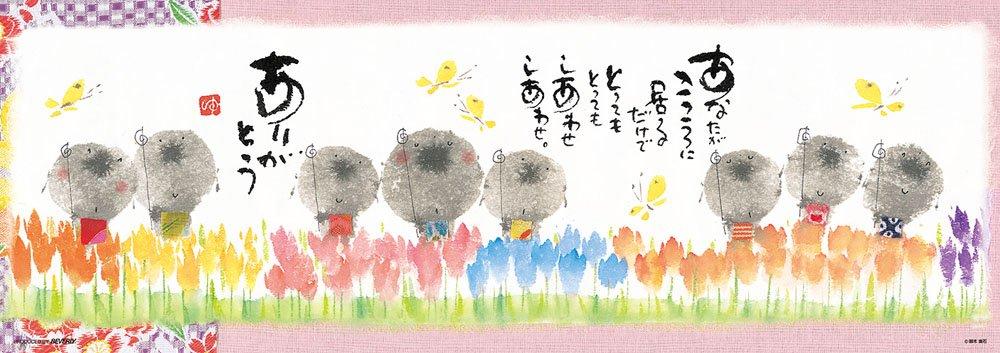 あなたが
こころに
居る
だけで
とっても
とっても
しあわせ
しあわせ。
ありが
とう
ゆ
PRODUCED BY BEVERLY